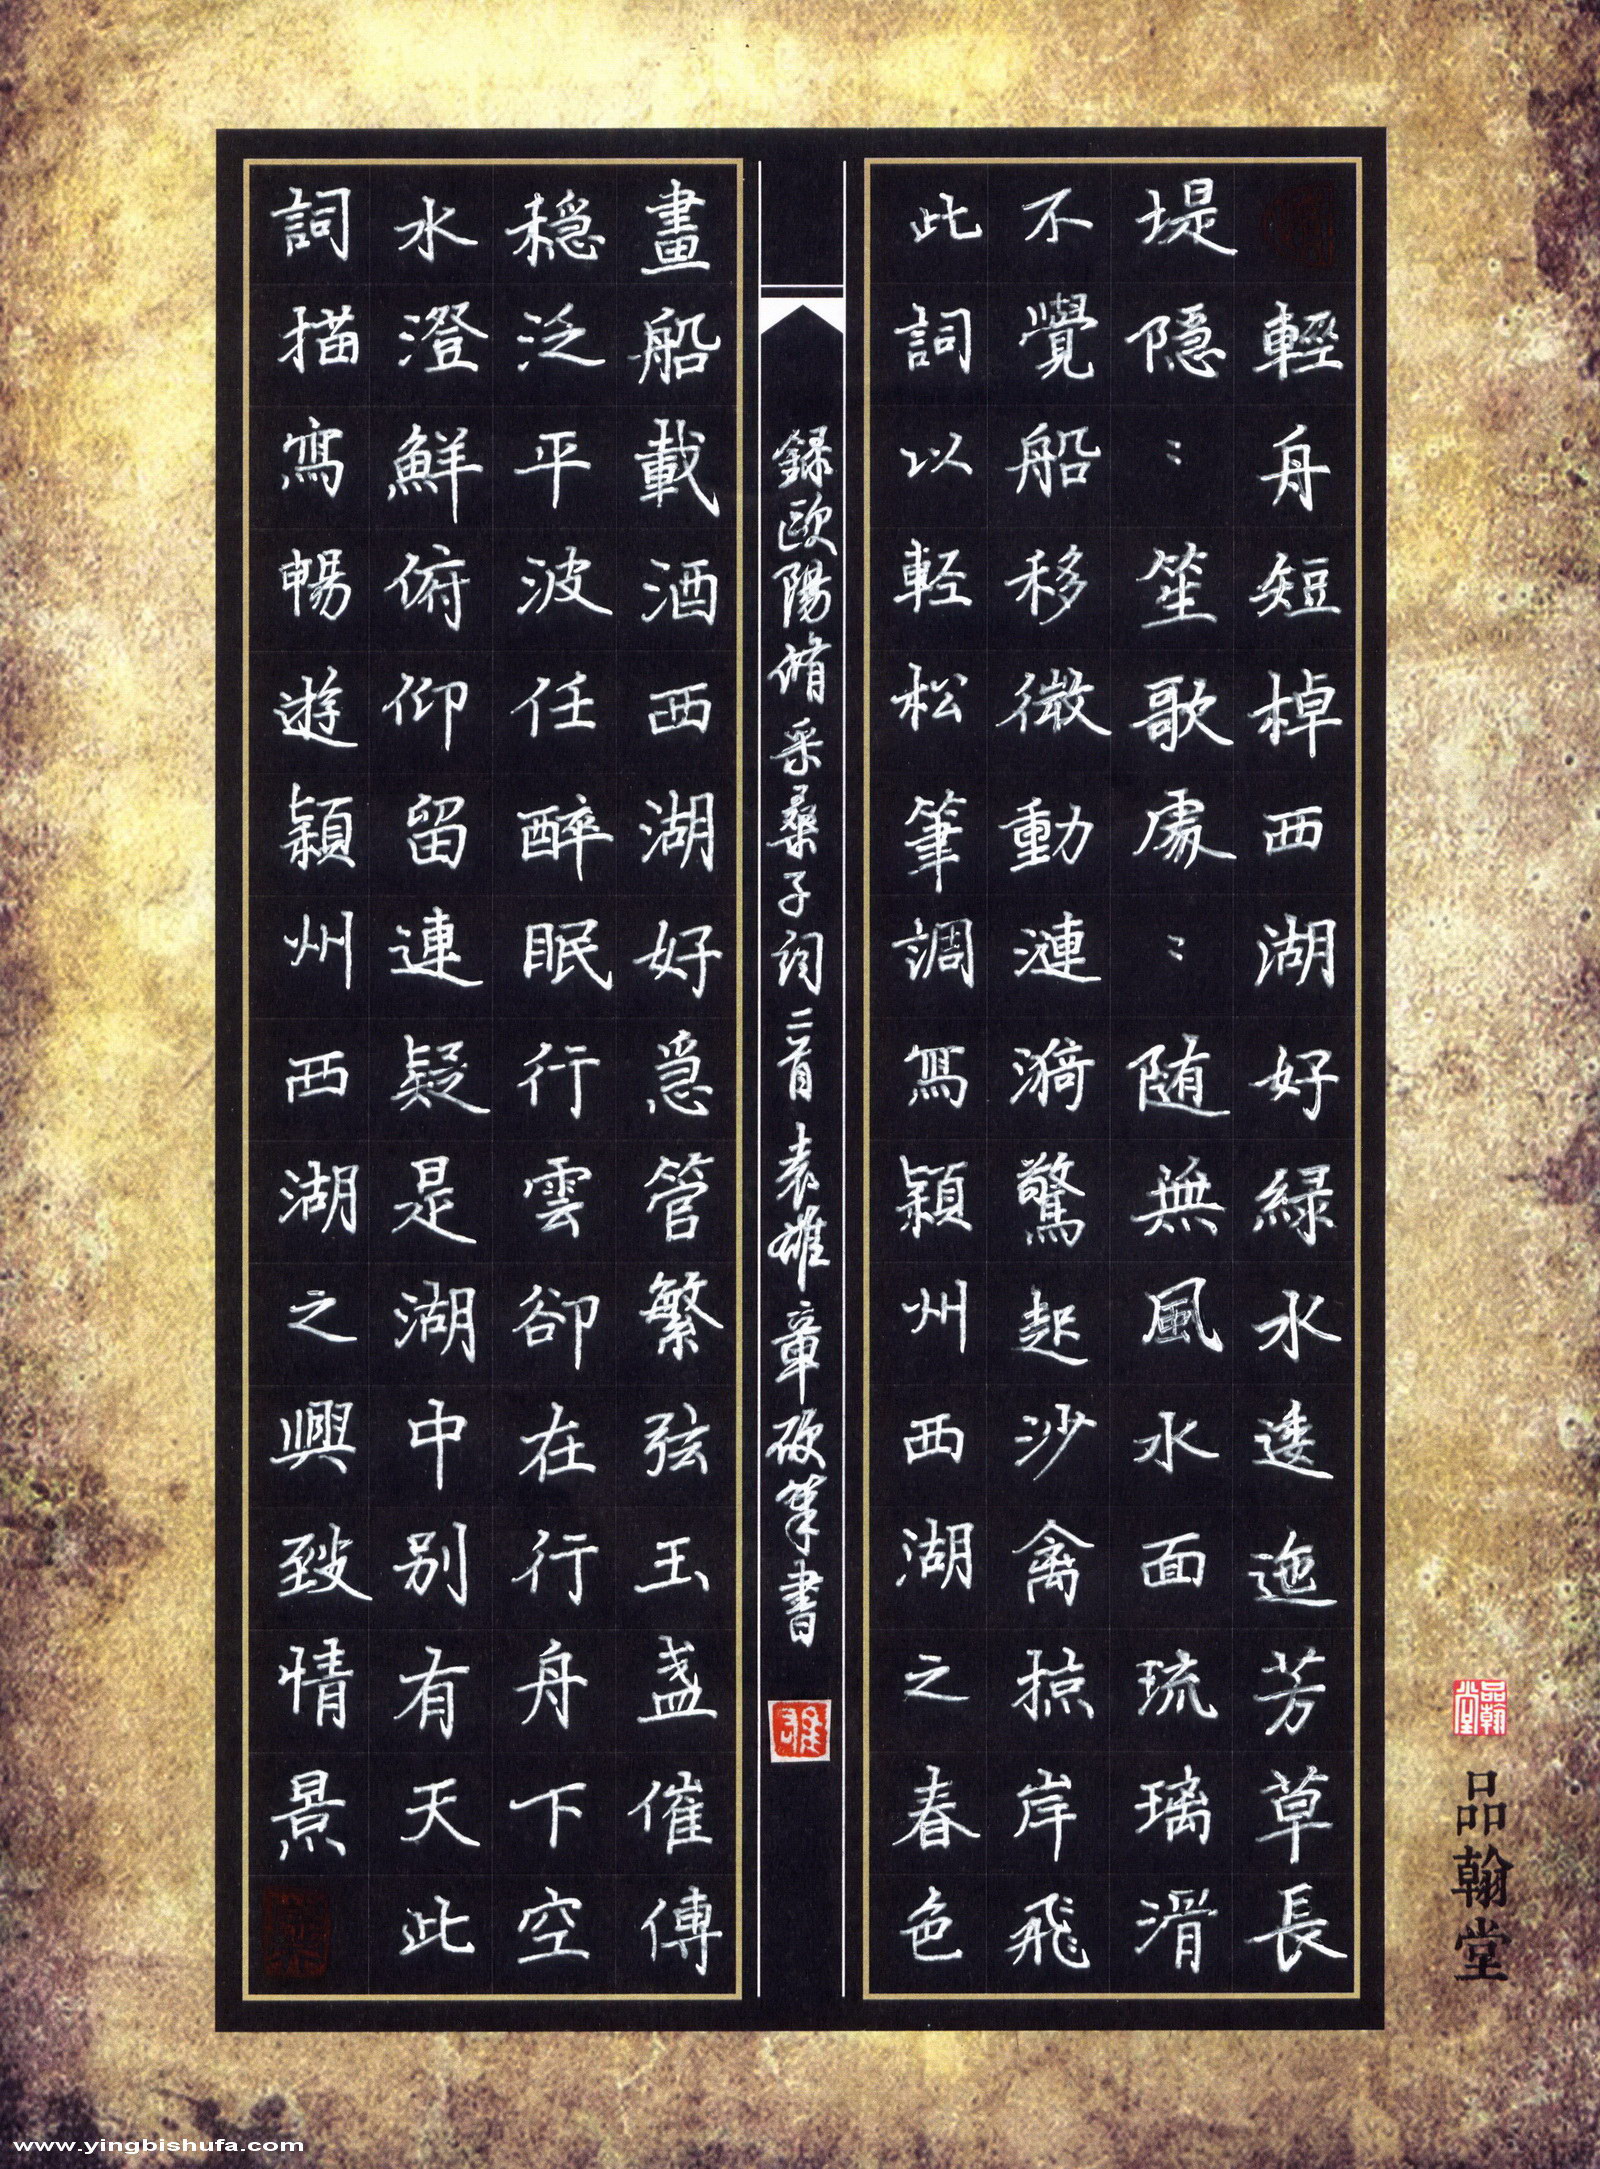 輕舟短棹西湖好綠水逶迤芳草長
堤隱〻笙歌處〻随無風水面琉璃滑
不覺船移微動漣漪驚起沙禽掠岸飛
此詞以輕松筆調寫潁州西湖之春色
録歐陽脩采桑子詞二首袁雄章硬筆書
畫船載酒西湖好急管繁弦玉盞催傳
穏泛平波任醉眠行雲卻在行舟下空
水澄鮮俯仰留連疑是湖中别有天此
詞描寫暢遊潁州西湖之興致情景
品翰堂
品翰堂
www.yingbishufa.com